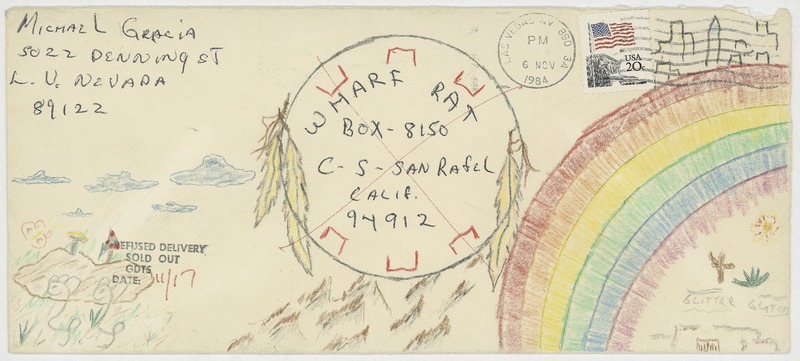 MICHAEL GRACIA
5022 DENNING ST
L. V. NEVADA
89122
LAS VEGAS NV 890 34
PM
6 NOV
1984
USA
20c
WHARF RAT
BOX-8150
C-S-SAN RAFEL
CALIF.
94912
REFUSED DELIVERY
SOLD OUT
GDTS
DATE: 11/17
GLITTER GLITTER